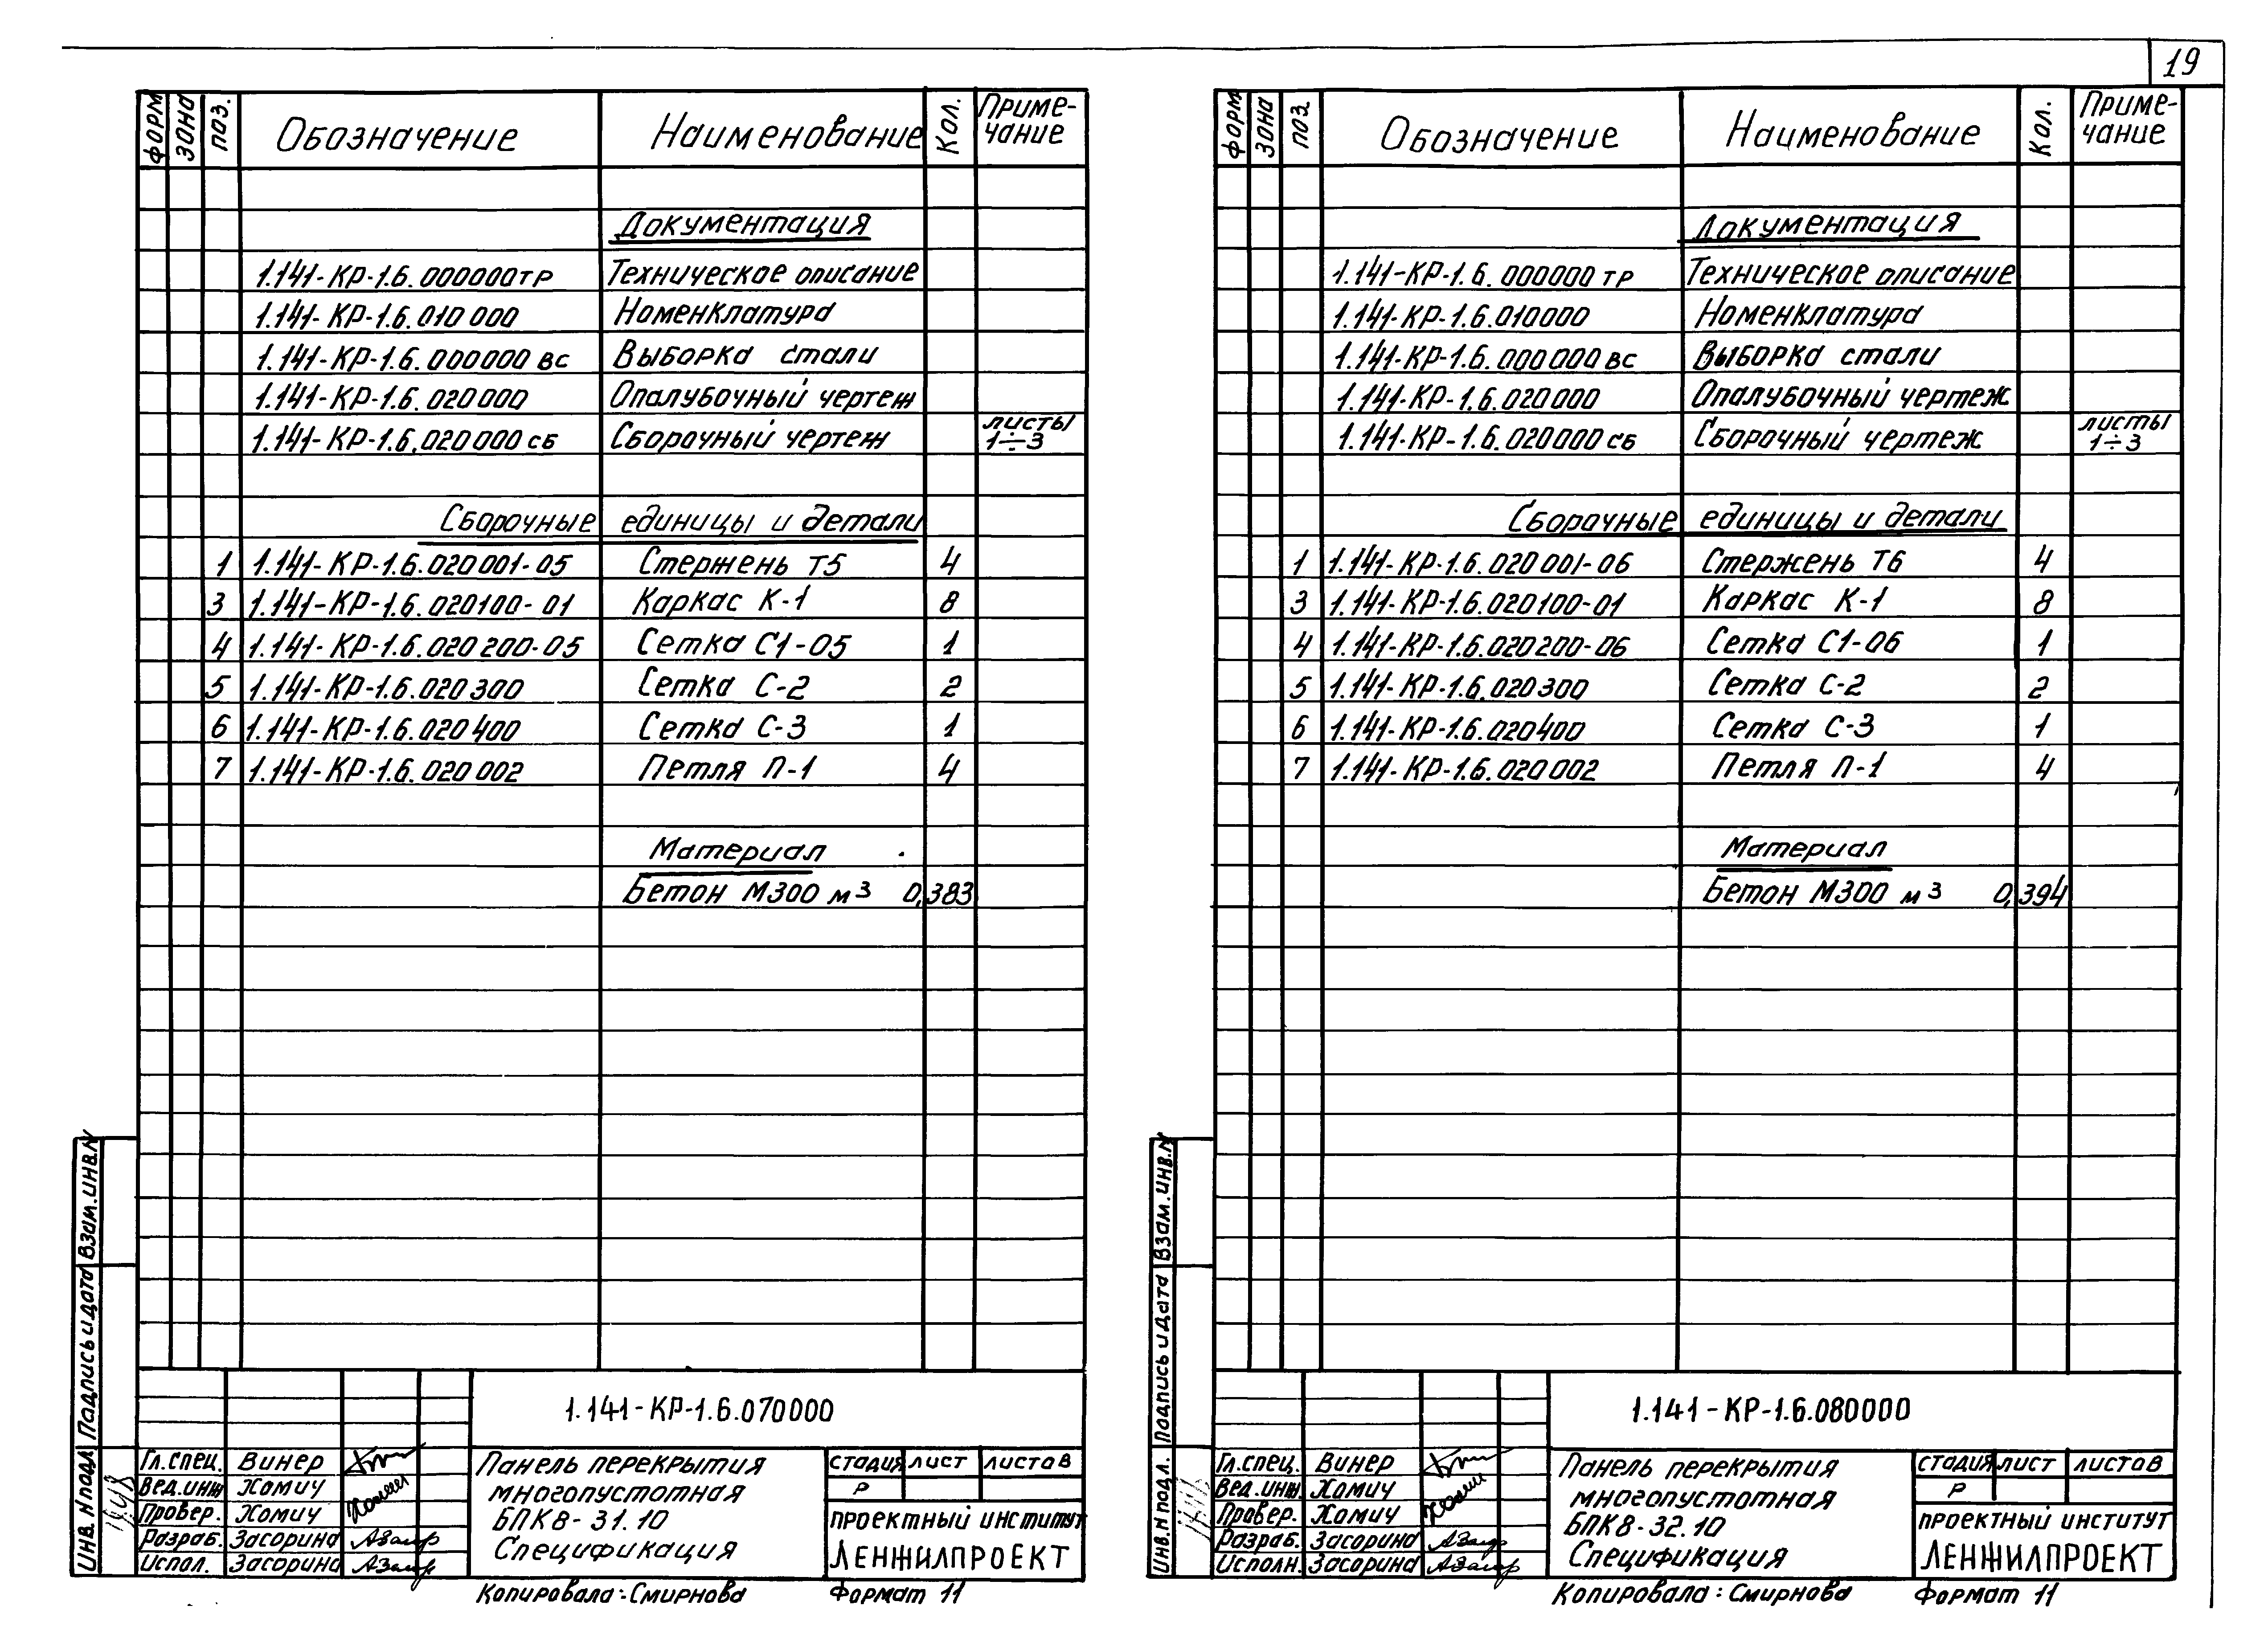 19
форм зона поз. Обозначение Наименование Кол. Приме-
чание
Документация
1.141-КР-1.6.000000ТР Техническое описание
1.141-КР-1.6.010000 Номенклатура
1.141-КР-1.6.000000 ВС Выборка стали
1.141-КР-1.6.020000 Опалубочный чертеж
1.141-КР-1.6.020000 СБ Сборочный чертеж листы
1÷3
Сборочные единицы и детали
1 1.141-КР-1.6.020001-05 Стержень Т5 4
3 1.141-КР-1.6.020100-01 Каркас К-1 8
4 1.141-КР-1.6.020200-05 Сетка С1-05 1
5 1.141-КР-1.6.020300 Сетка С-2 2
6 1.141-КР-1.6.020400 Сетка С-3 1
7 1.141-КР-1.6.020002 Петля П-1 4
Материал
Бетон М300 м³ 0,383
Взам.инв.N
Подпись и дата
Инв.N подл.
1.141-КР-1.6.070000
Гл.спец. Винер
Вед.инж Хомич
Провер. Хомич
Разраб. Засорина
Испол. Засорина
Панель перекрытия
многопустотная
БПК8-31.10
Спецификация
стадия лист листов
Р
проектный институт
ЛЕНЖИЛПРОЕКТ
Копировала: Смирнова Формат 11
форм зона поз. Обозначение Наименование Кол. Приме-
чание
Документация
1.141-КР-1.6.000000 ТР Техническое описание
1.141-КР-1.6.010000 Номенклатура
1.141-КР-1.6.000000 ВС Выборка стали
1.141-КР-1.6.020000 Опалубочный чертеж
1.141-КР-1.6.020000 СБ Сборочный чертеж листы
1÷3
Сборочные единицы и детали
1 1.141-КР-1.6.020001-06 Стержень Т6 4
3 1.141-КР-1.6.020100-01 Каркас К-1 8
4 1.141-КР-1.6.020200-06 Сетка С1-06 1
5 1.141-КР-1.6.020300 Сетка С-2 2
6 1.141-КР-1.6.020400 Сетка С-3 1
7 1.141-КР-1.6.020002 Петля П-1 4
Материал
Бетон М300 м³ 0,394
Взам.инв.N
Подпись и дата
Инв.N подл.
1.141-КР-1.6.080000
Гл.спец. Винер
Вед.инж. Хомич
Провер. Хомич
Разраб. Засорина
Исполн. Засорина
Панель перекрытия
многопустотная
БПК8-32.10
Спецификация
стадия лист листов
Р
проектный институт
ЛЕНЖИЛПРОЕКТ
Копировала: Смирнова Формат 11